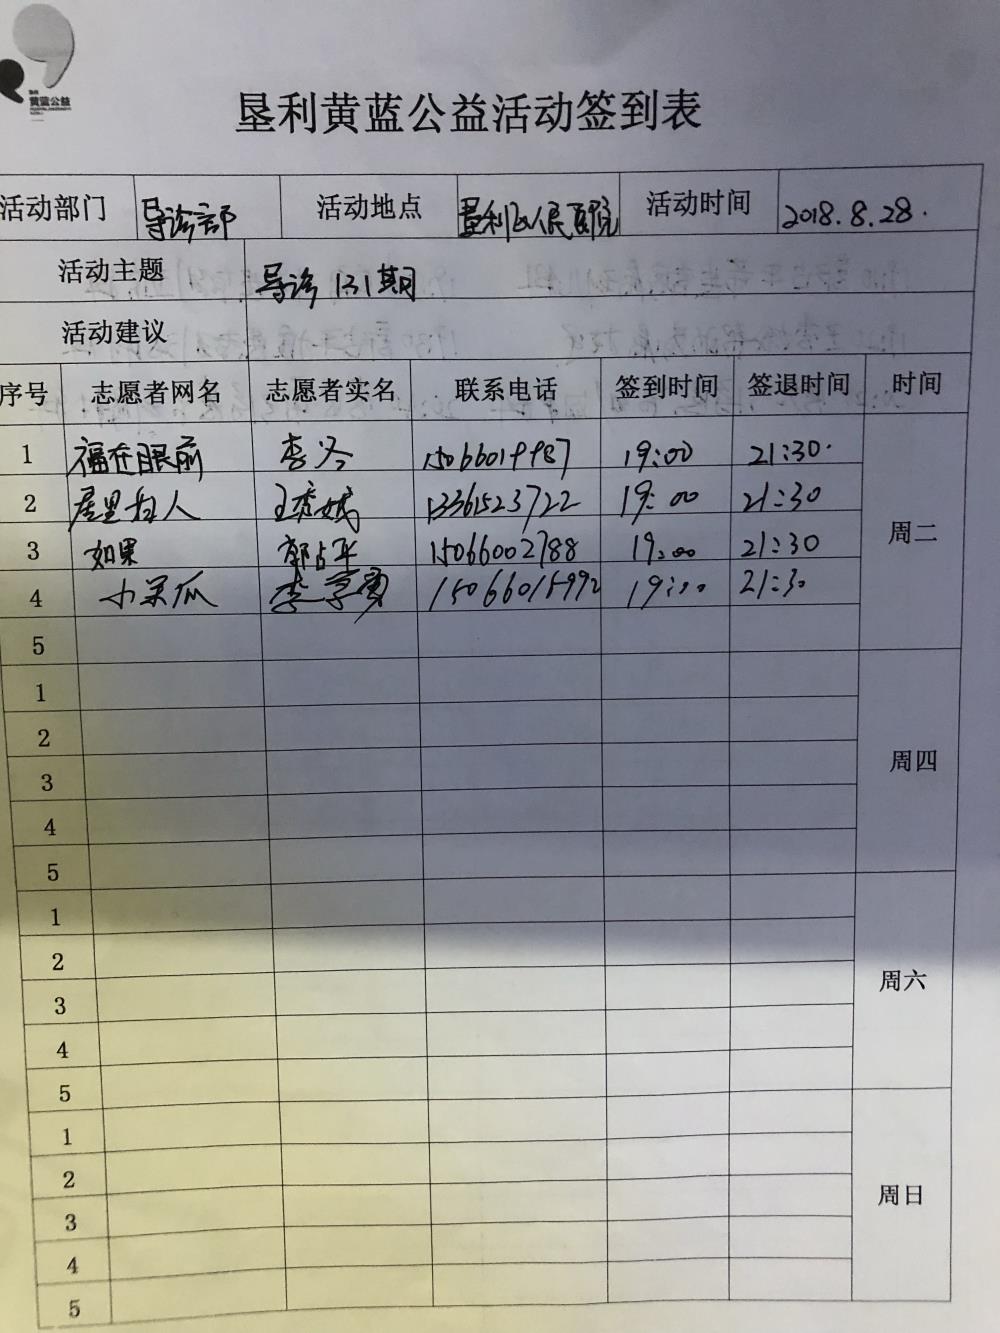 黄蓝公益
垦利黄蓝公益活动签到表
活动部门 导诊部 活动地点 垦利区人民医院 活动时间 2018.8.28.
活动主题 导诊131期
活动建议
序号 志愿者网名 志愿者实名 联系电话 签到时间 签退时间 时间
1 福在眼前 李冷 15066019987 19:00 21:30
2 13361523722 19:00 21:30
周二
3 如果 郭占平 15066002788 19:00 21:30
4 小呆瓜 15066015992 19:00 21:30
5
1
2
3 周四
4
5
1
2
3 周六
4
5
1
2
3 周日
4
5